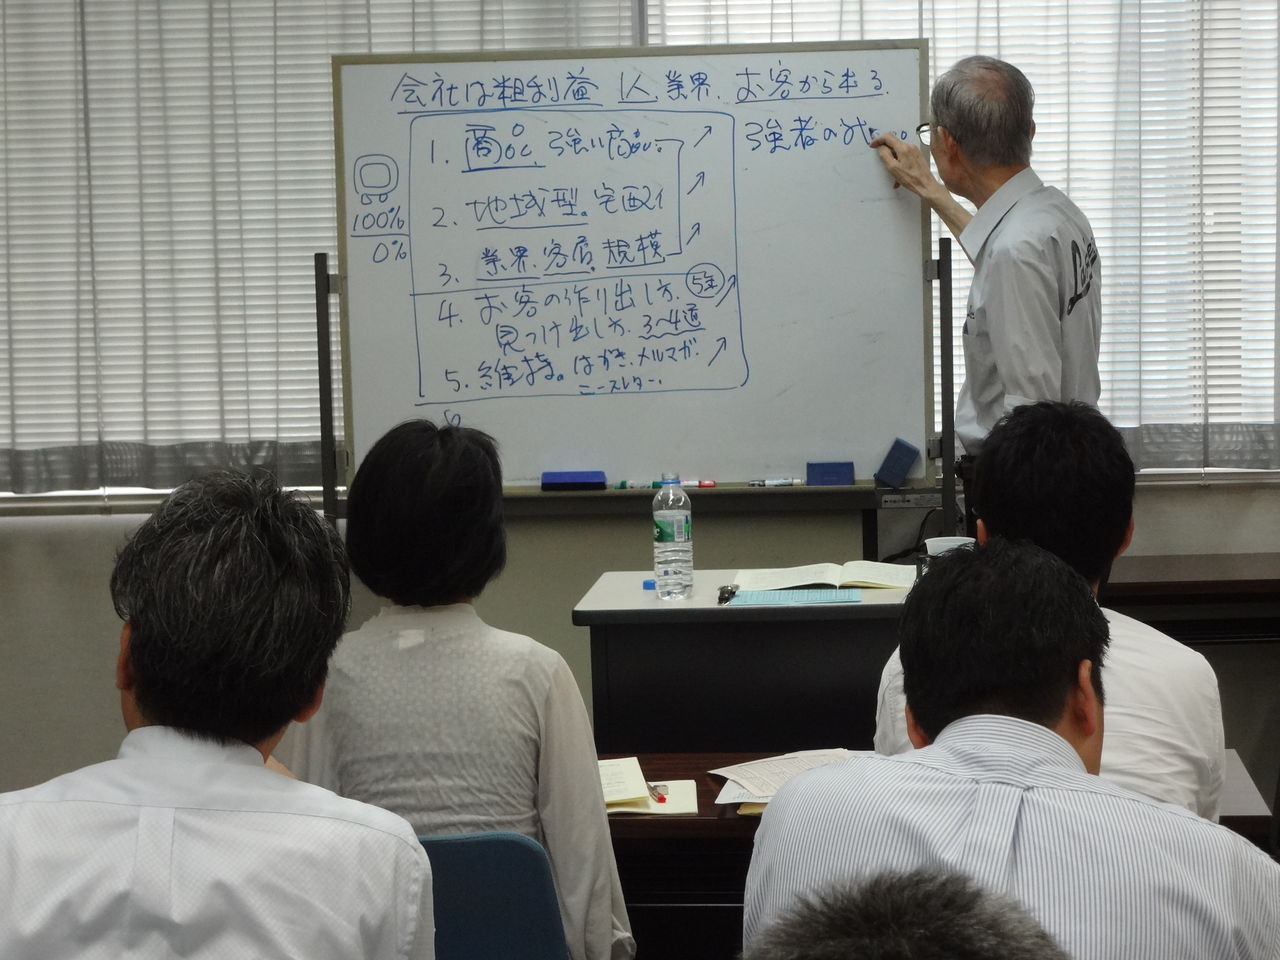 会社は粗利益 1人. 業界. お客から出る.
1. 商品. 強い商品.
2. 地域型. 宅配
3. 業界 客層. 規模
4. お客の作り出し方. 5年
見つけ出し方. 3〜4通
5. 維持. はがき. メルマガ.
ニュースレター.
6
100%
0%
強者の